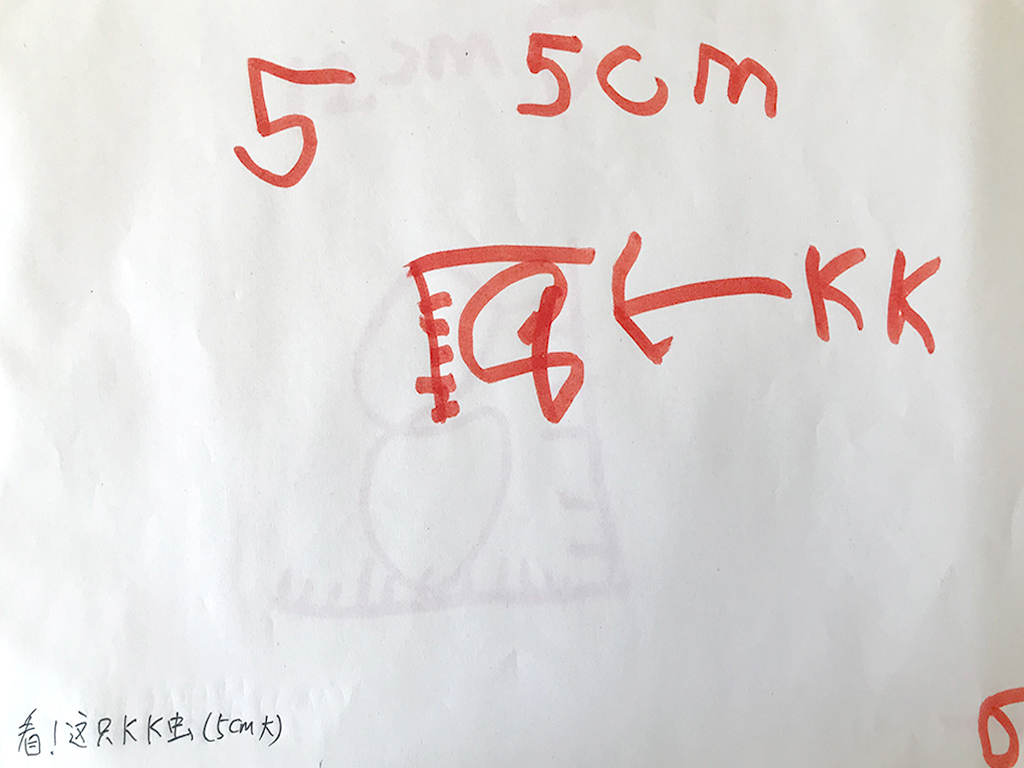 5 5cm
KK
看！这只KK虫(5cm大)